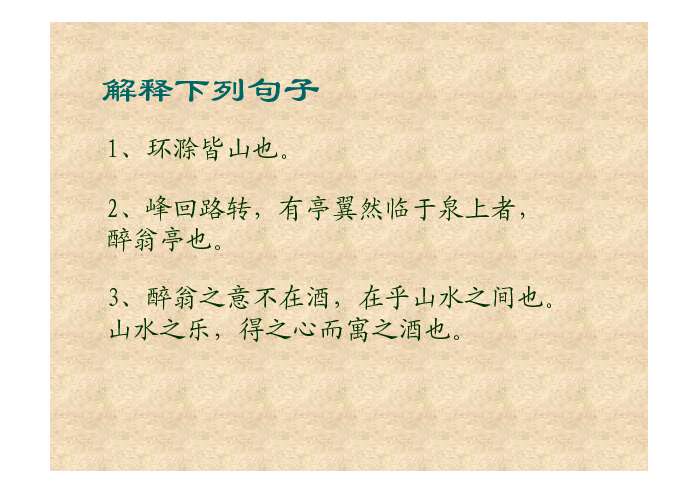 解释下列句子
1、环滁皆山也。
2、峰回路转，有亭翼然临于泉上者，
醉翁亭也。
3、醉翁之意不在酒，在乎山水之间也。
山水之乐，得之心而寓之酒也。